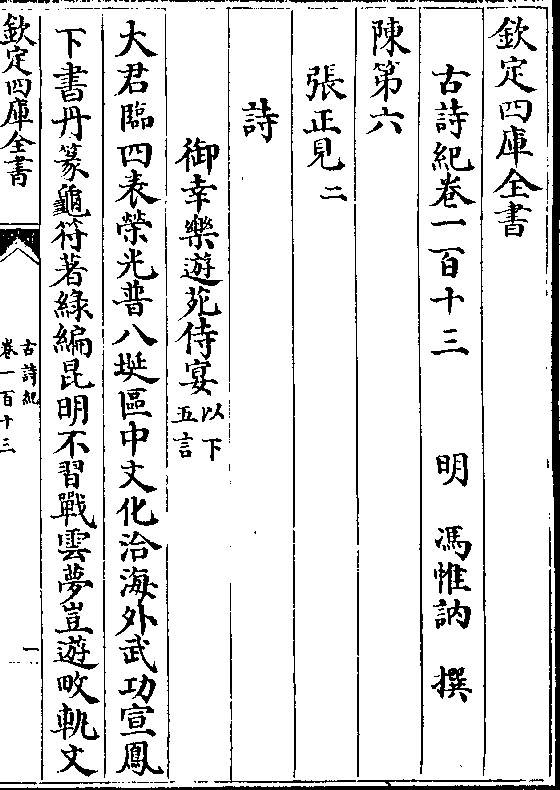 欽定四庫全書
古詩紀卷一百十三 明 馮惟訥 撰
陳第六
張正見二
詩
御幸樂遊苑侍宴以下五言
大君臨四表榮光普八埏區中文化洽海外武功宣鳳
下書丹篆龜符著綠編昆明不習戰雲夢豈遊畋軌文
欽定四庫全書
古詩紀
卷一百十三
一